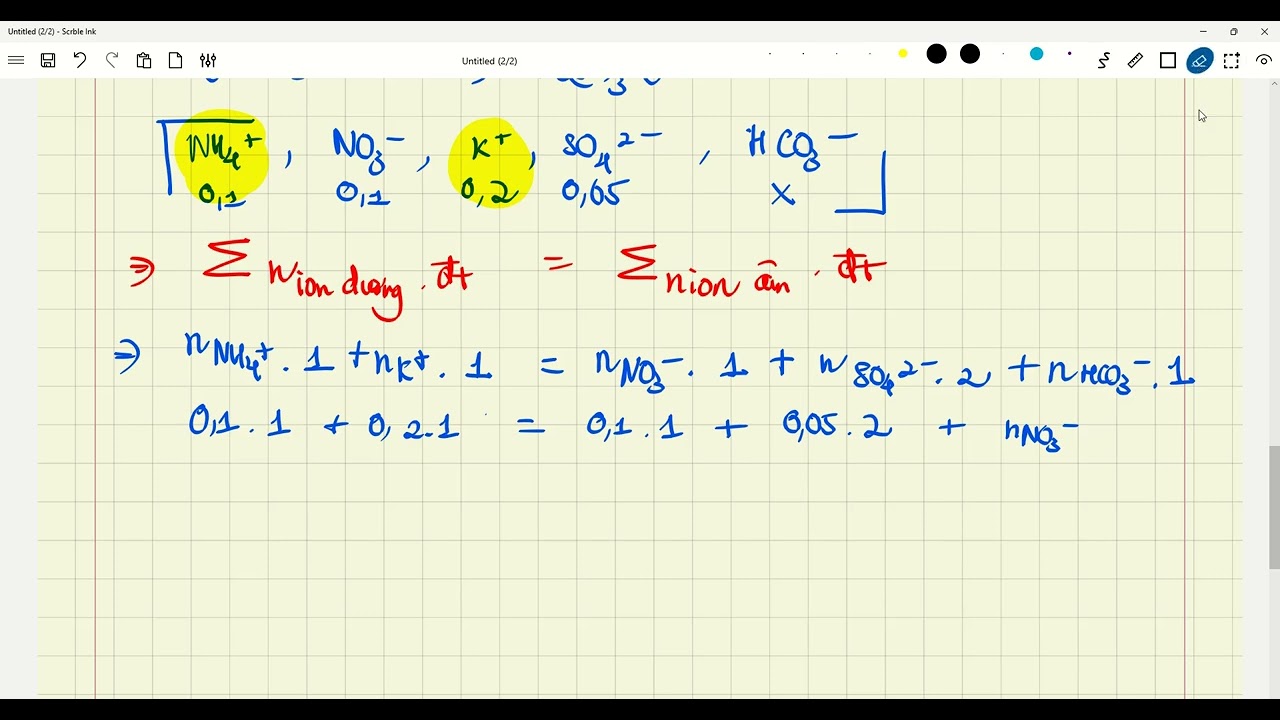 Untitled (2/2) - Scrble Ink
Untitled (2/2)
NH₄⁺ , NO₃⁻ , K⁺ , SO₄²⁻ , HCO₃⁻
0,1 0,1 0,2 0,05 x
⇒ Σ n ion dương . đt = Σ n ion âm . đt
⇒ n NH₄⁺ . 1 + n K⁺ . 1 = n NO₃⁻ . 1 + n SO₄²⁻ . 2 + n HCO₃⁻ . 1
0,1 . 1 + 0,2 . 1 = 0,1 . 1 + 0,05 . 2 + n NO₃⁻